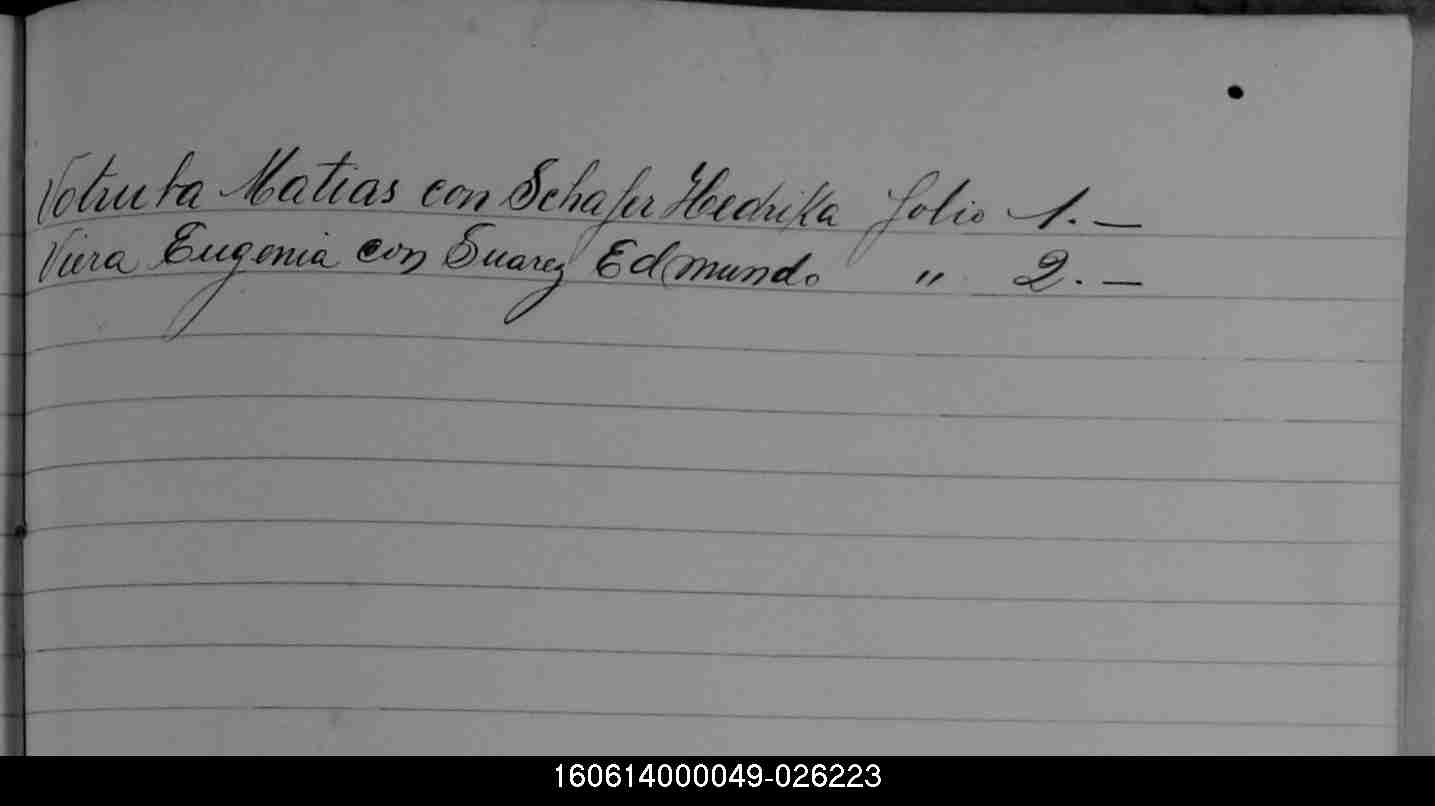 Votruba Matias con Schafer Hedrika folio 1. —
Viera Eugenia con Suarez Edmundo " 2. —
160614000049-026223